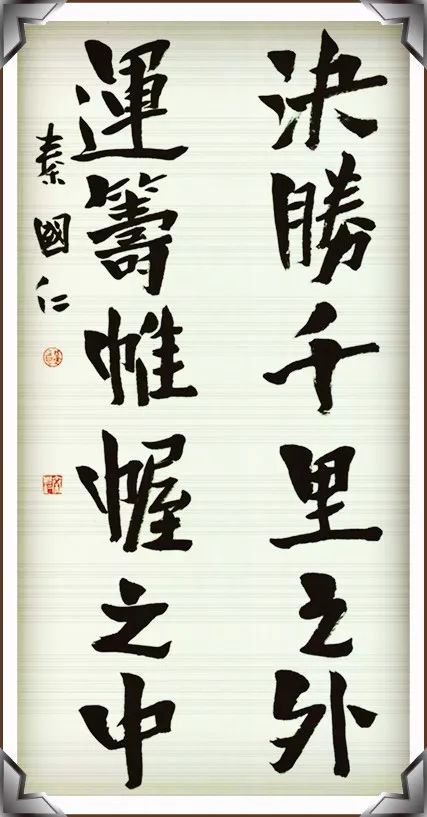 決勝千里之外
運籌帷幄之中
秦國仁